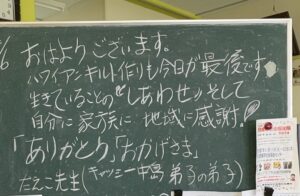 6
おはようございます。
ハワイアンキルト作りも今日が最後です。
生きていることの"しあわせ"そして
自分に家族に 地域に感謝!
ありがとう、おかげさま
たえこ先生(キャシー中島 弟子の弟子)